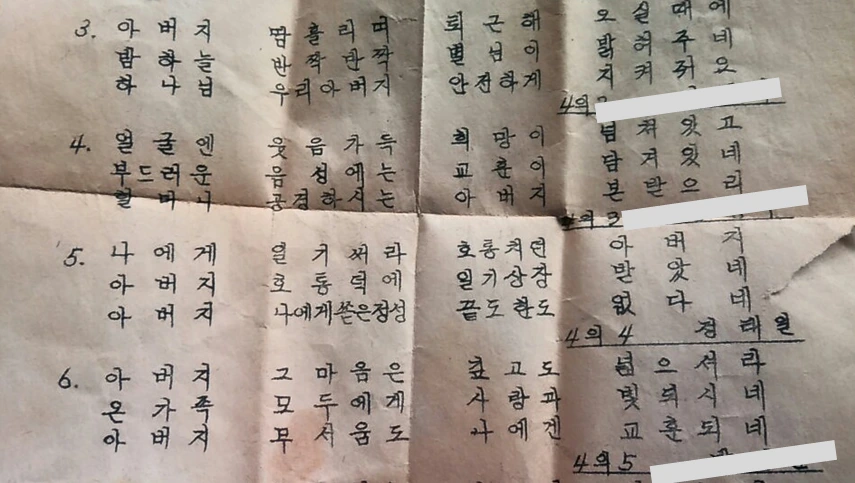 3. 아버지 땀흘리며 퇴근해 오실때에
밤하늘 반짝반짝 별님이 밝혀주네
하나님 우리아버지 안전하게 지켜줘요
4의
4. 얼굴엔 웃음가득 희망이 넘쳐왔고
부드러운 음성에는 교훈이 담겨있네
할버니 공경하시는 아버지 본받으리
4의3
5. 나에게 일기써라 호통치던 아버지
아버지 호통덕에 일기상장 받았네
아버지 나에게쏟은정성 끝도한도 없다네
4의4 경태원
6. 아버지 그마음은 높고도 넓으셔라
온가족 모두에게 사랑과 빛되시네
아버지 무서움도 나에겐 교훈되네
4의5